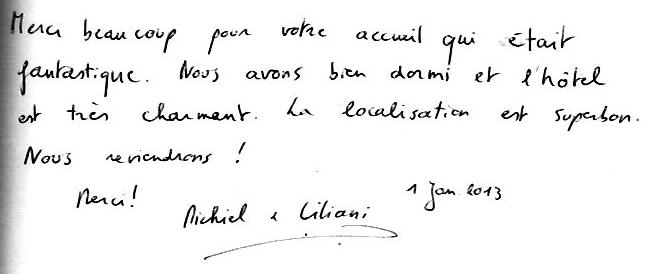 Merci beaucoup pour votre accueil qui était
fantastique. Nous avons bien dormi et l'hôtel
est très charmant. La localisation est superbon.
Nous reviendrons !
Merci! Michiel & Liliani 1 Jan 2013